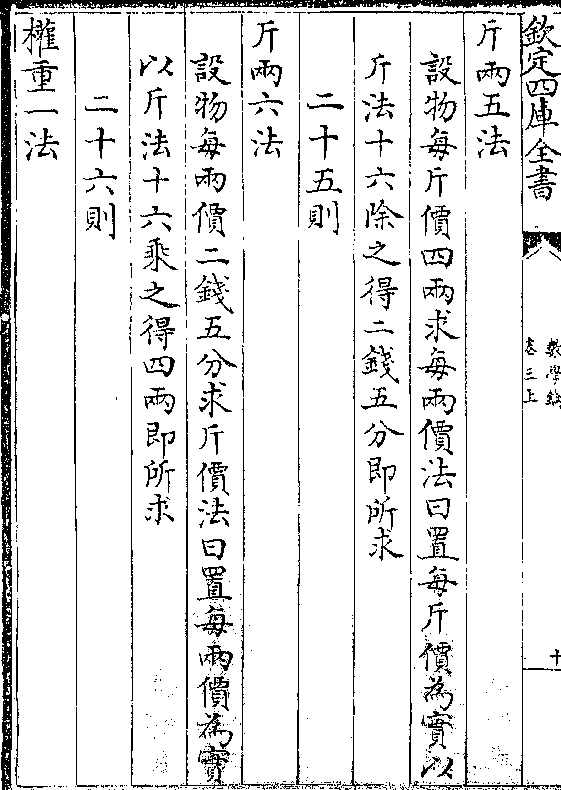 欽定四庫全書
數學鑰
卷三上
十
斤兩五法
設物每斤價四兩求每兩價法曰置每斤價為實以
斤法十六除之得二錢五分即所求
二十五則
斤兩六法
設物每兩價二錢五分求斤價法曰置每兩價為實
以斤法十六乘之得四兩即所求
二十六則
權重一法